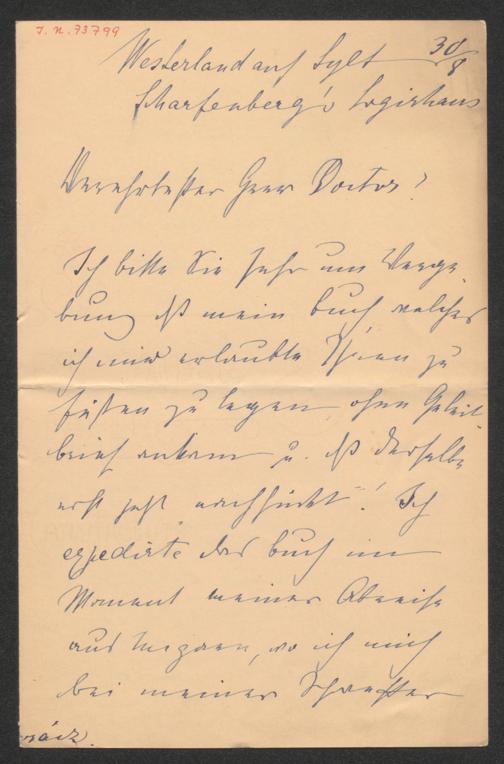 J. N. 73799
Westerland auf Sylt 30/8
Scharfenberg's Logirhaus
Verehrtester Herr Doctor!
Ich bitte Sie sehr um Verge-
bung dß mein Buch welches
ich mir erlaubte Ihnen zu
Füßen zu legen, ohne Geleit-
brief ankam u. dß derselbe
erst jetzt nachhinkt! Ich
expedirte das Buch im
Moment meiner Abreise
aus Ungarn, wo ich mich
bei meiner Schwester